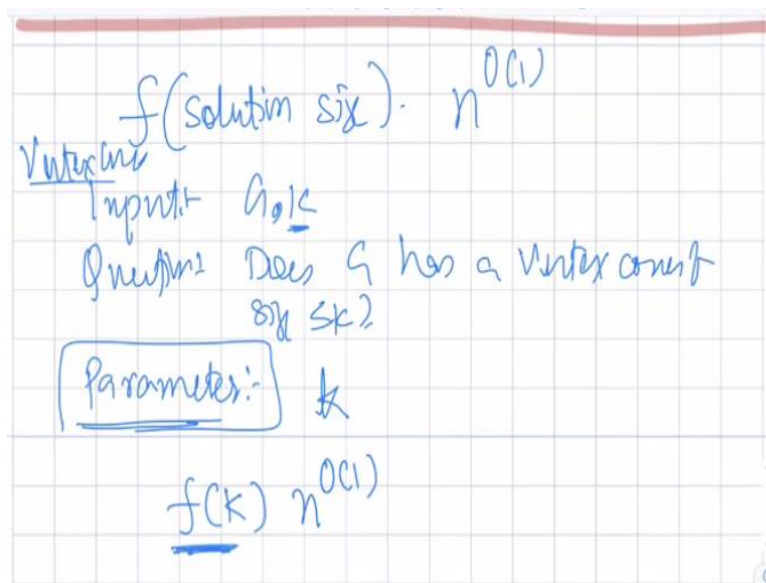 f(solutin size). n^O(1)
Vertex Cover
Input:- G, k
Question: Does G has a vertex cover of
size ≤k?
Parameter:- k
f(k) n^O(1)